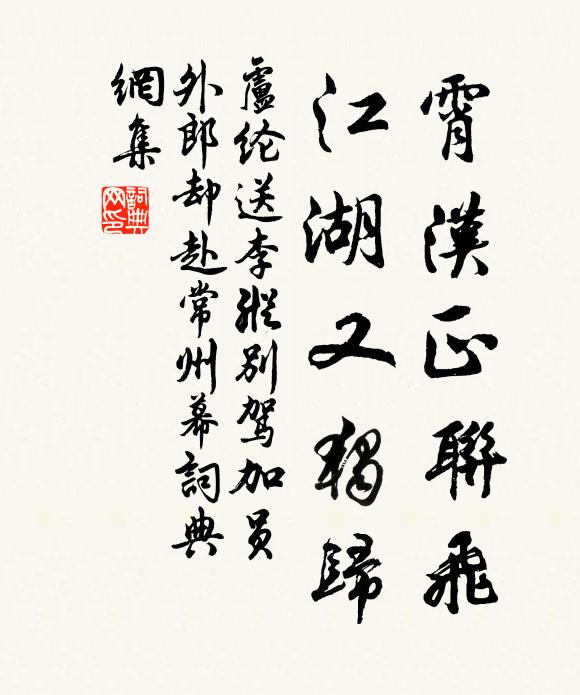 霄漢正聯飛
江湖又獨歸
盧纶送李縱別駕加员
外郎却赴常州幕詞典
網集
詞典网印